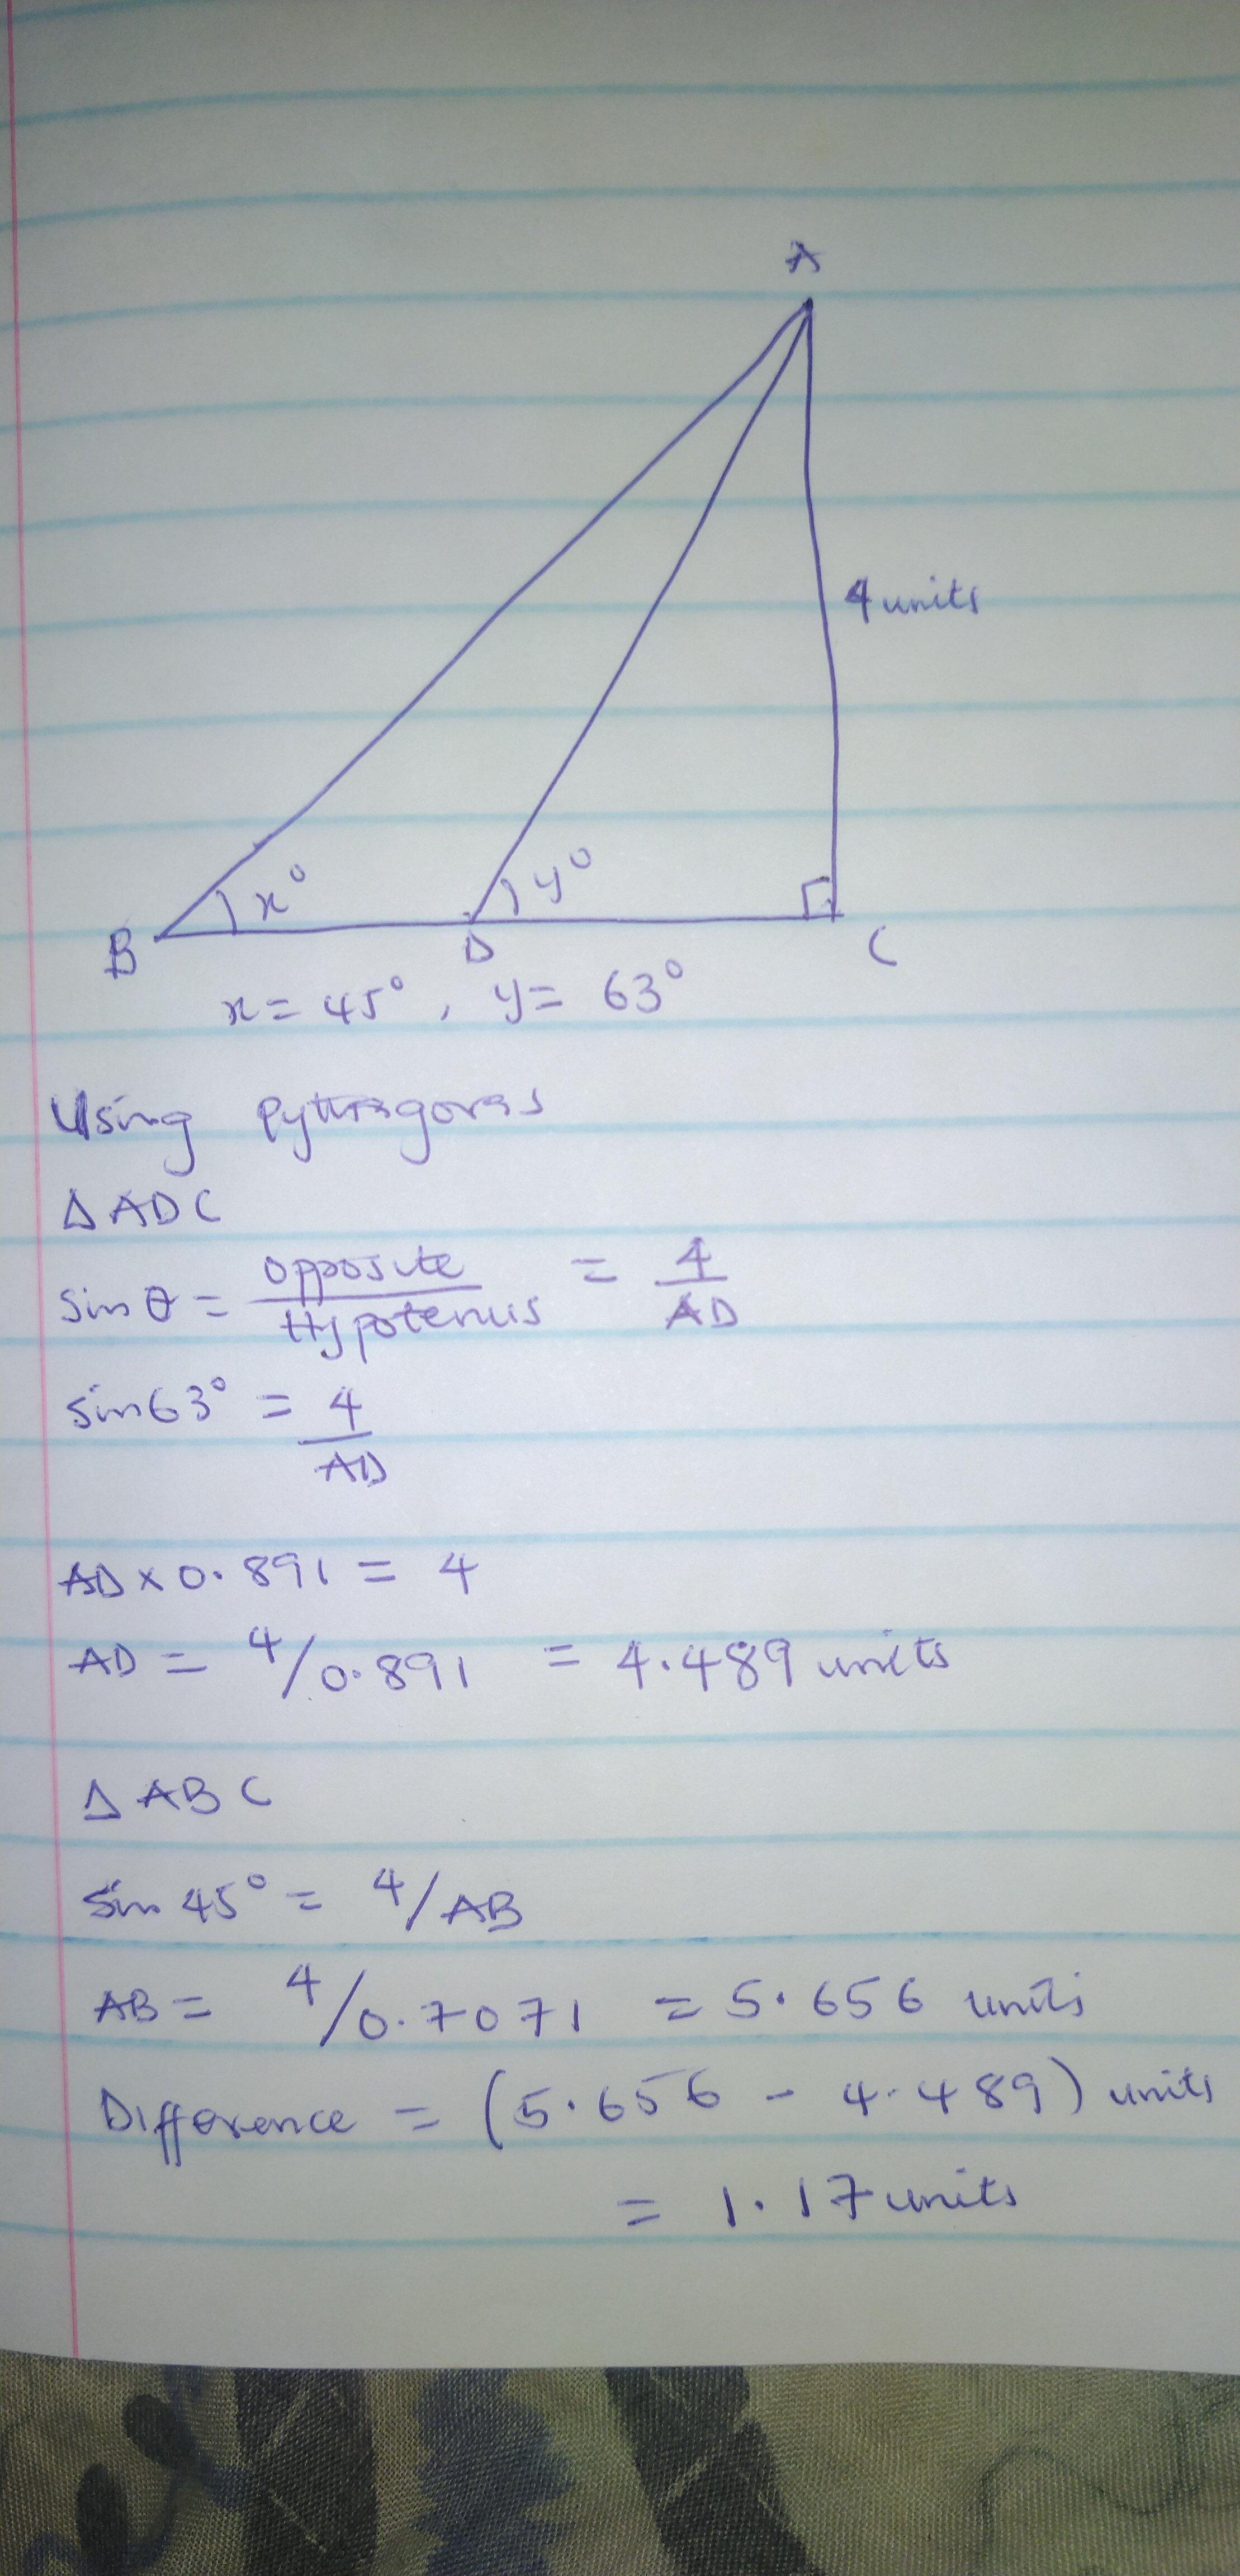 A
4 units
x° y°
B D C
x = 45°, y = 63°
Using Pythagoras
Δ ADC
sin θ = opposite / Hypotenus = 4 / AD
sin 63° = 4 / AD
AD × 0.891 = 4
AD = 4/0.891 = 4.489 units
Δ ABC
Sin 45° = 4/AB
AB = 4/0.7071 = 5.656 units
Difference = (5.656 - 4.489) units
= 1.17 units